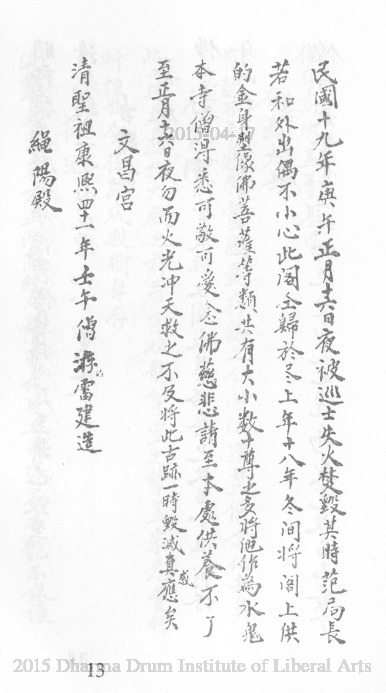 民國十九年庚午正月十六日夜被巡士失火焚毀其時范局長
若和外出偶不小心此閣全歸於尽上年十八年冬間將閣上供
的金身塑像佛菩薩等類共有大小数十尊之多將他作為水鬼
本寺僧淂悉可敬可愛念佛慈悲請至本處供養不了
至正月十六日夜勿而火光冲天救之不及將此古跡一時毀滅真感應矣
文昌宮
清聖祖康熙四十一年壬午僧 雷建造
繩陽殿
2015-04-
13
2015 Dharma Drum Institute of Liberal Arts